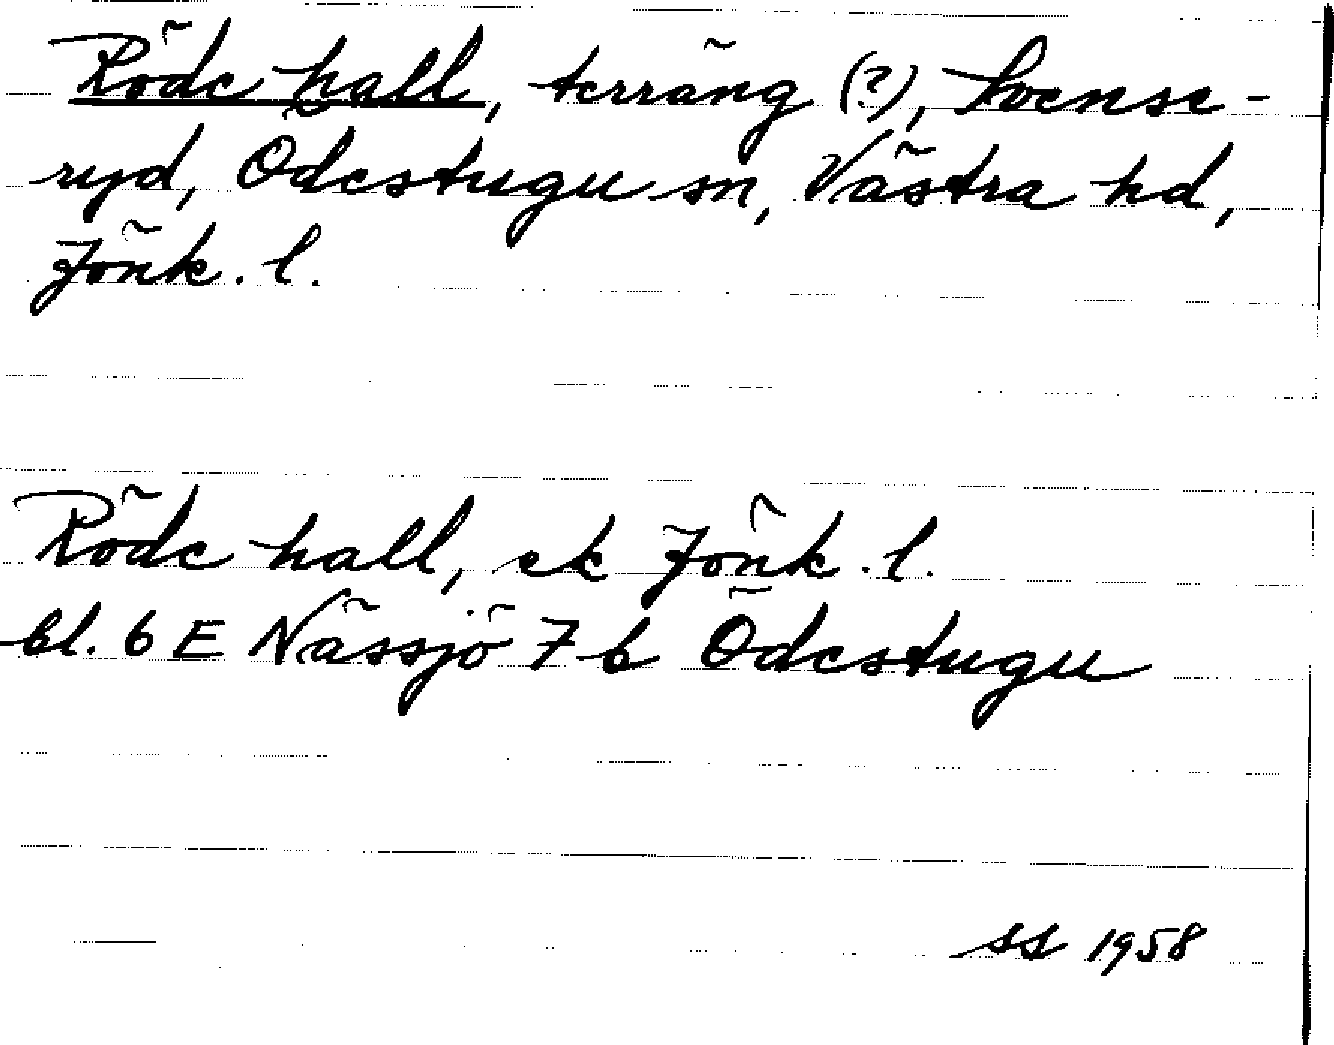 Röde hall, terräng (?), Svense-
ryd, Ödestugu sn, Västra hd,
Jönk. l.
Röde hall, ek Jönk. l.
bl. 6 E Nässjö 7 b Ödestugu
SS 1958